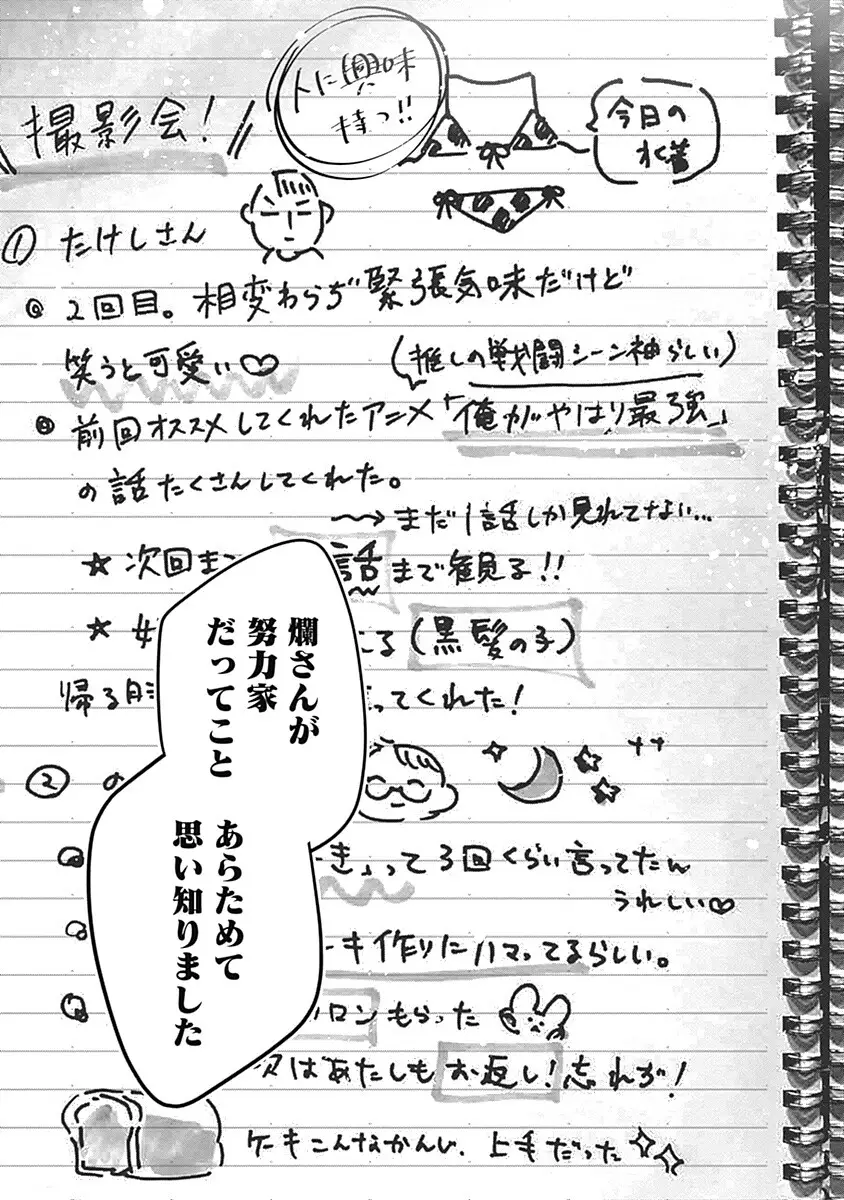 撮影会!
人に興味
持つ!!
今日の
水着
① たけしさん
2回目。相変わらず緊張気味だけど
笑うと可愛い♡
(推しの戦闘シーン神らしい)
前回オススメしてくれたアニメ「俺がやはり最強」
の話たくさんしてくれた。
→まだ1話しか見れてない…
★次回ま 話まで観る!!
★ る(黒髪の子)
帰る ってくれた!
②
き」って3回くらい言ってたん
うれしい♡
ーキ作りにハマってるらしい。
ロンもらった
次はあたしもお返し!忘れずに!
ケーキこんなかんじ、上手だった
爛さんが
努力家
だってこと
あらためて
思い知りました